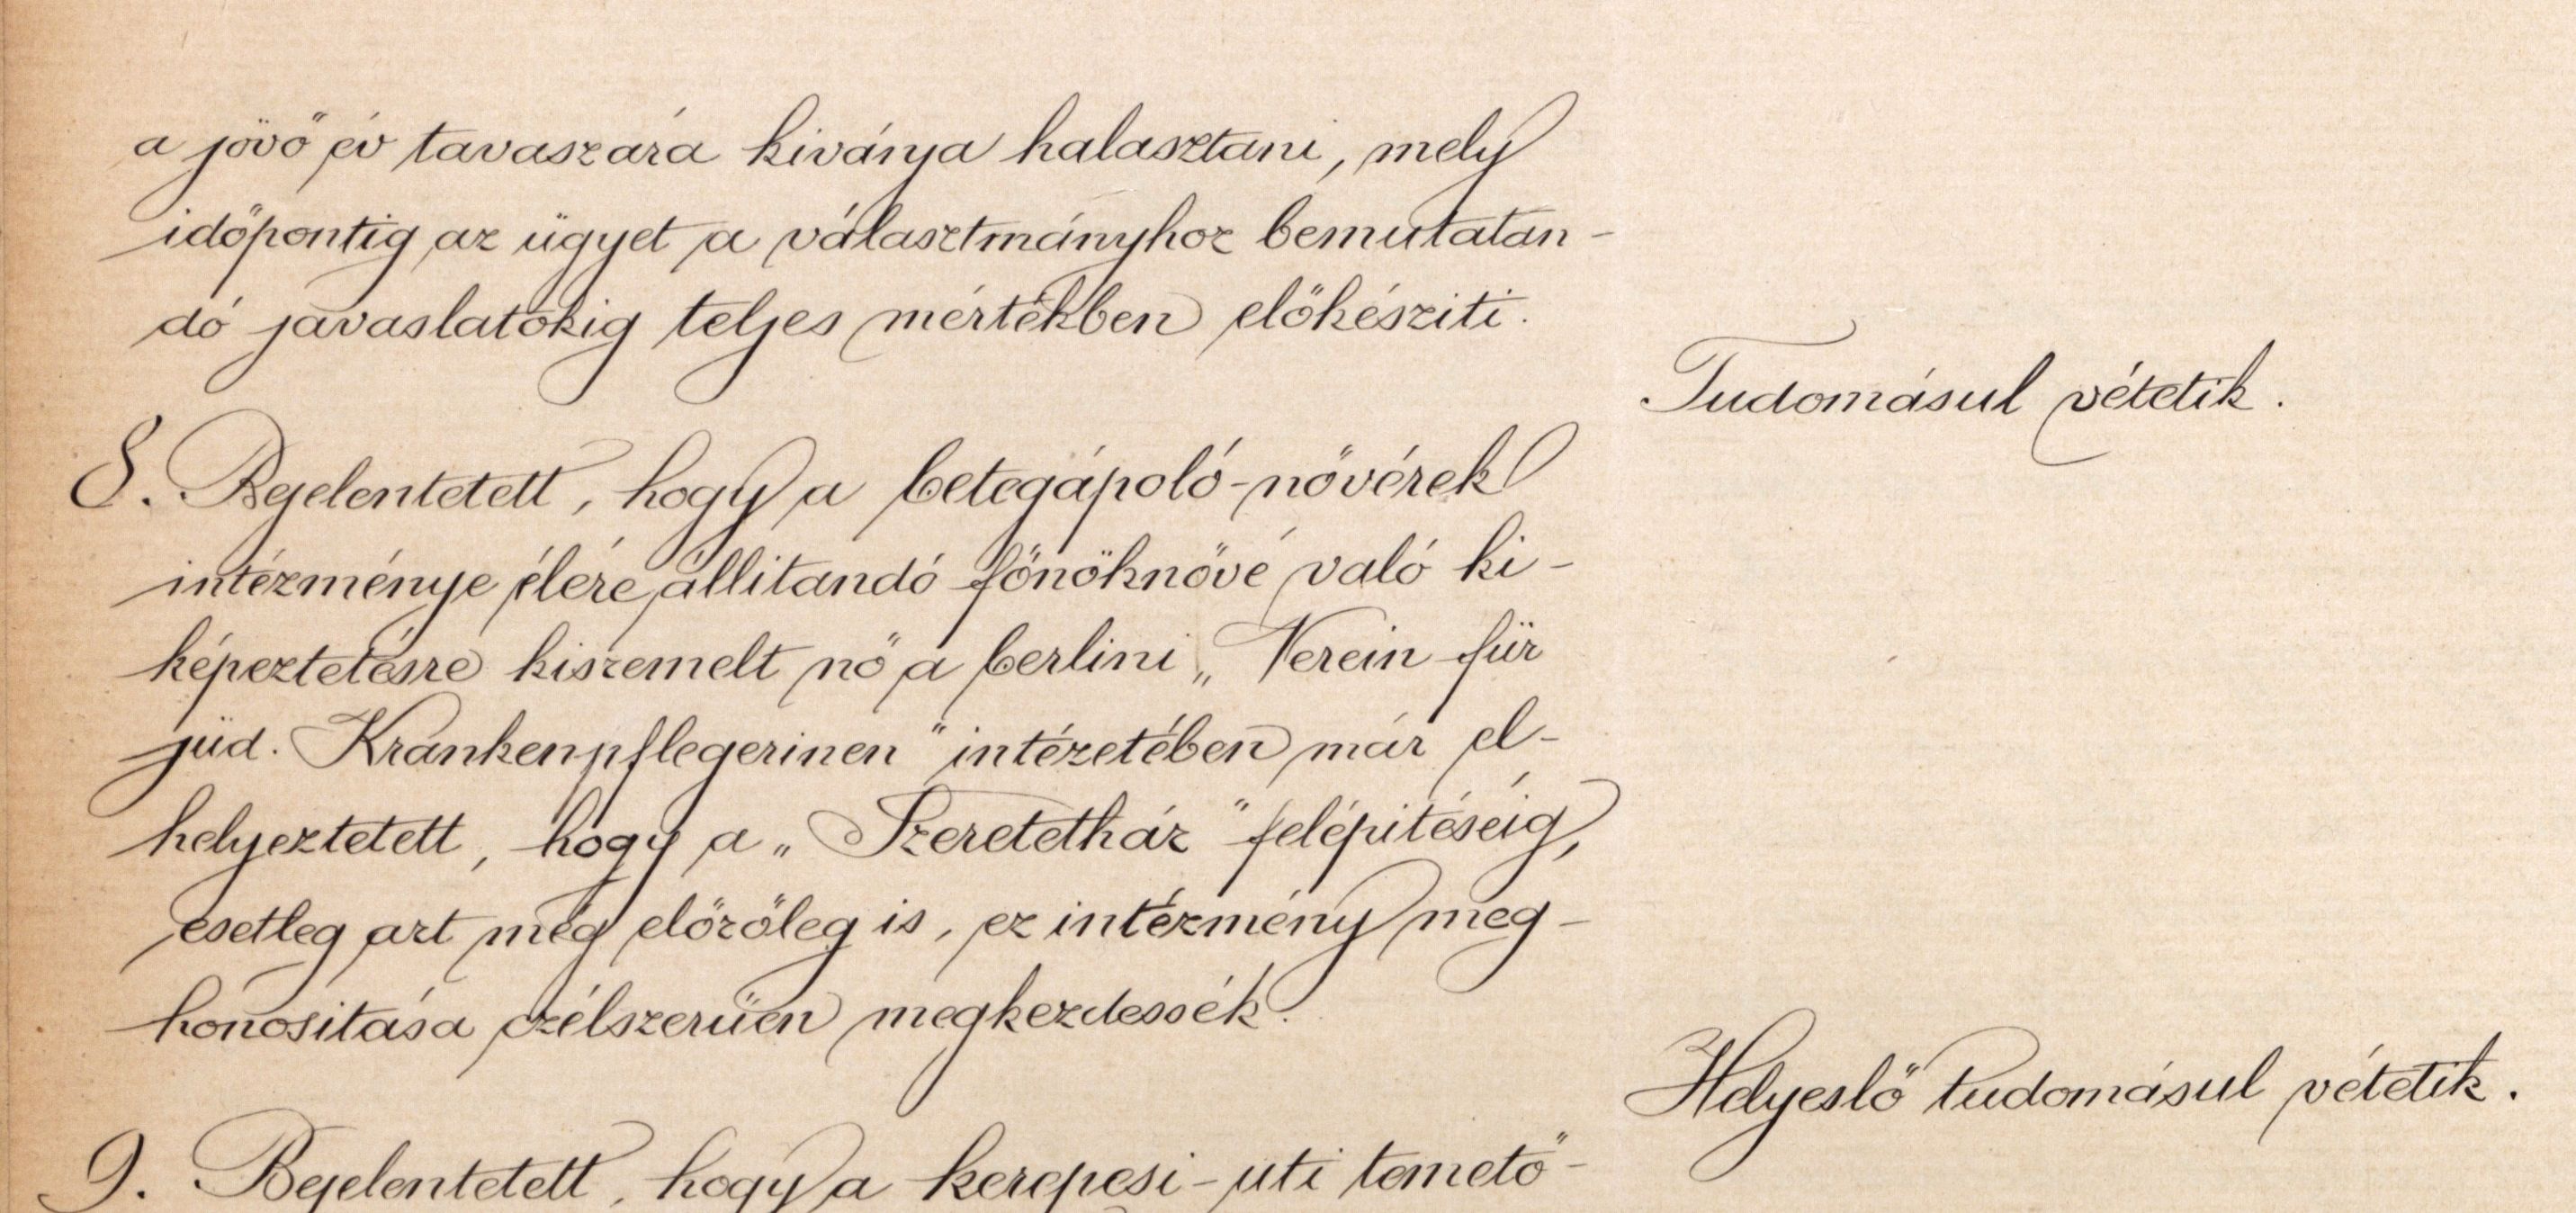 a jövő év tavaszára kivánja halasztani, mely
időpontig az ügyet a választmányhoz bemutatan-
dó javaslatokig teljes mértékben előkésziti.
Tudomásul vétetik.
8. Bejelentetett, hogy a betegápoló-nővérek
intézménye élére állitandó főnöknővé való ki-
képeztetésre kiszemelt nő a berlini „Verein für
jüd. Krankenpflegerinen" intézetében már el-
helyeztetett, hogy a „Szeretetház" felépitéséig,
esetleg azt még előzőleg is, ez intézmény meg-
honositása czélszerüen megkezdessék.
Helyeslő tudomásul vétetik.
9. Bejelentetett, hogy a kerepesi-uti temető-